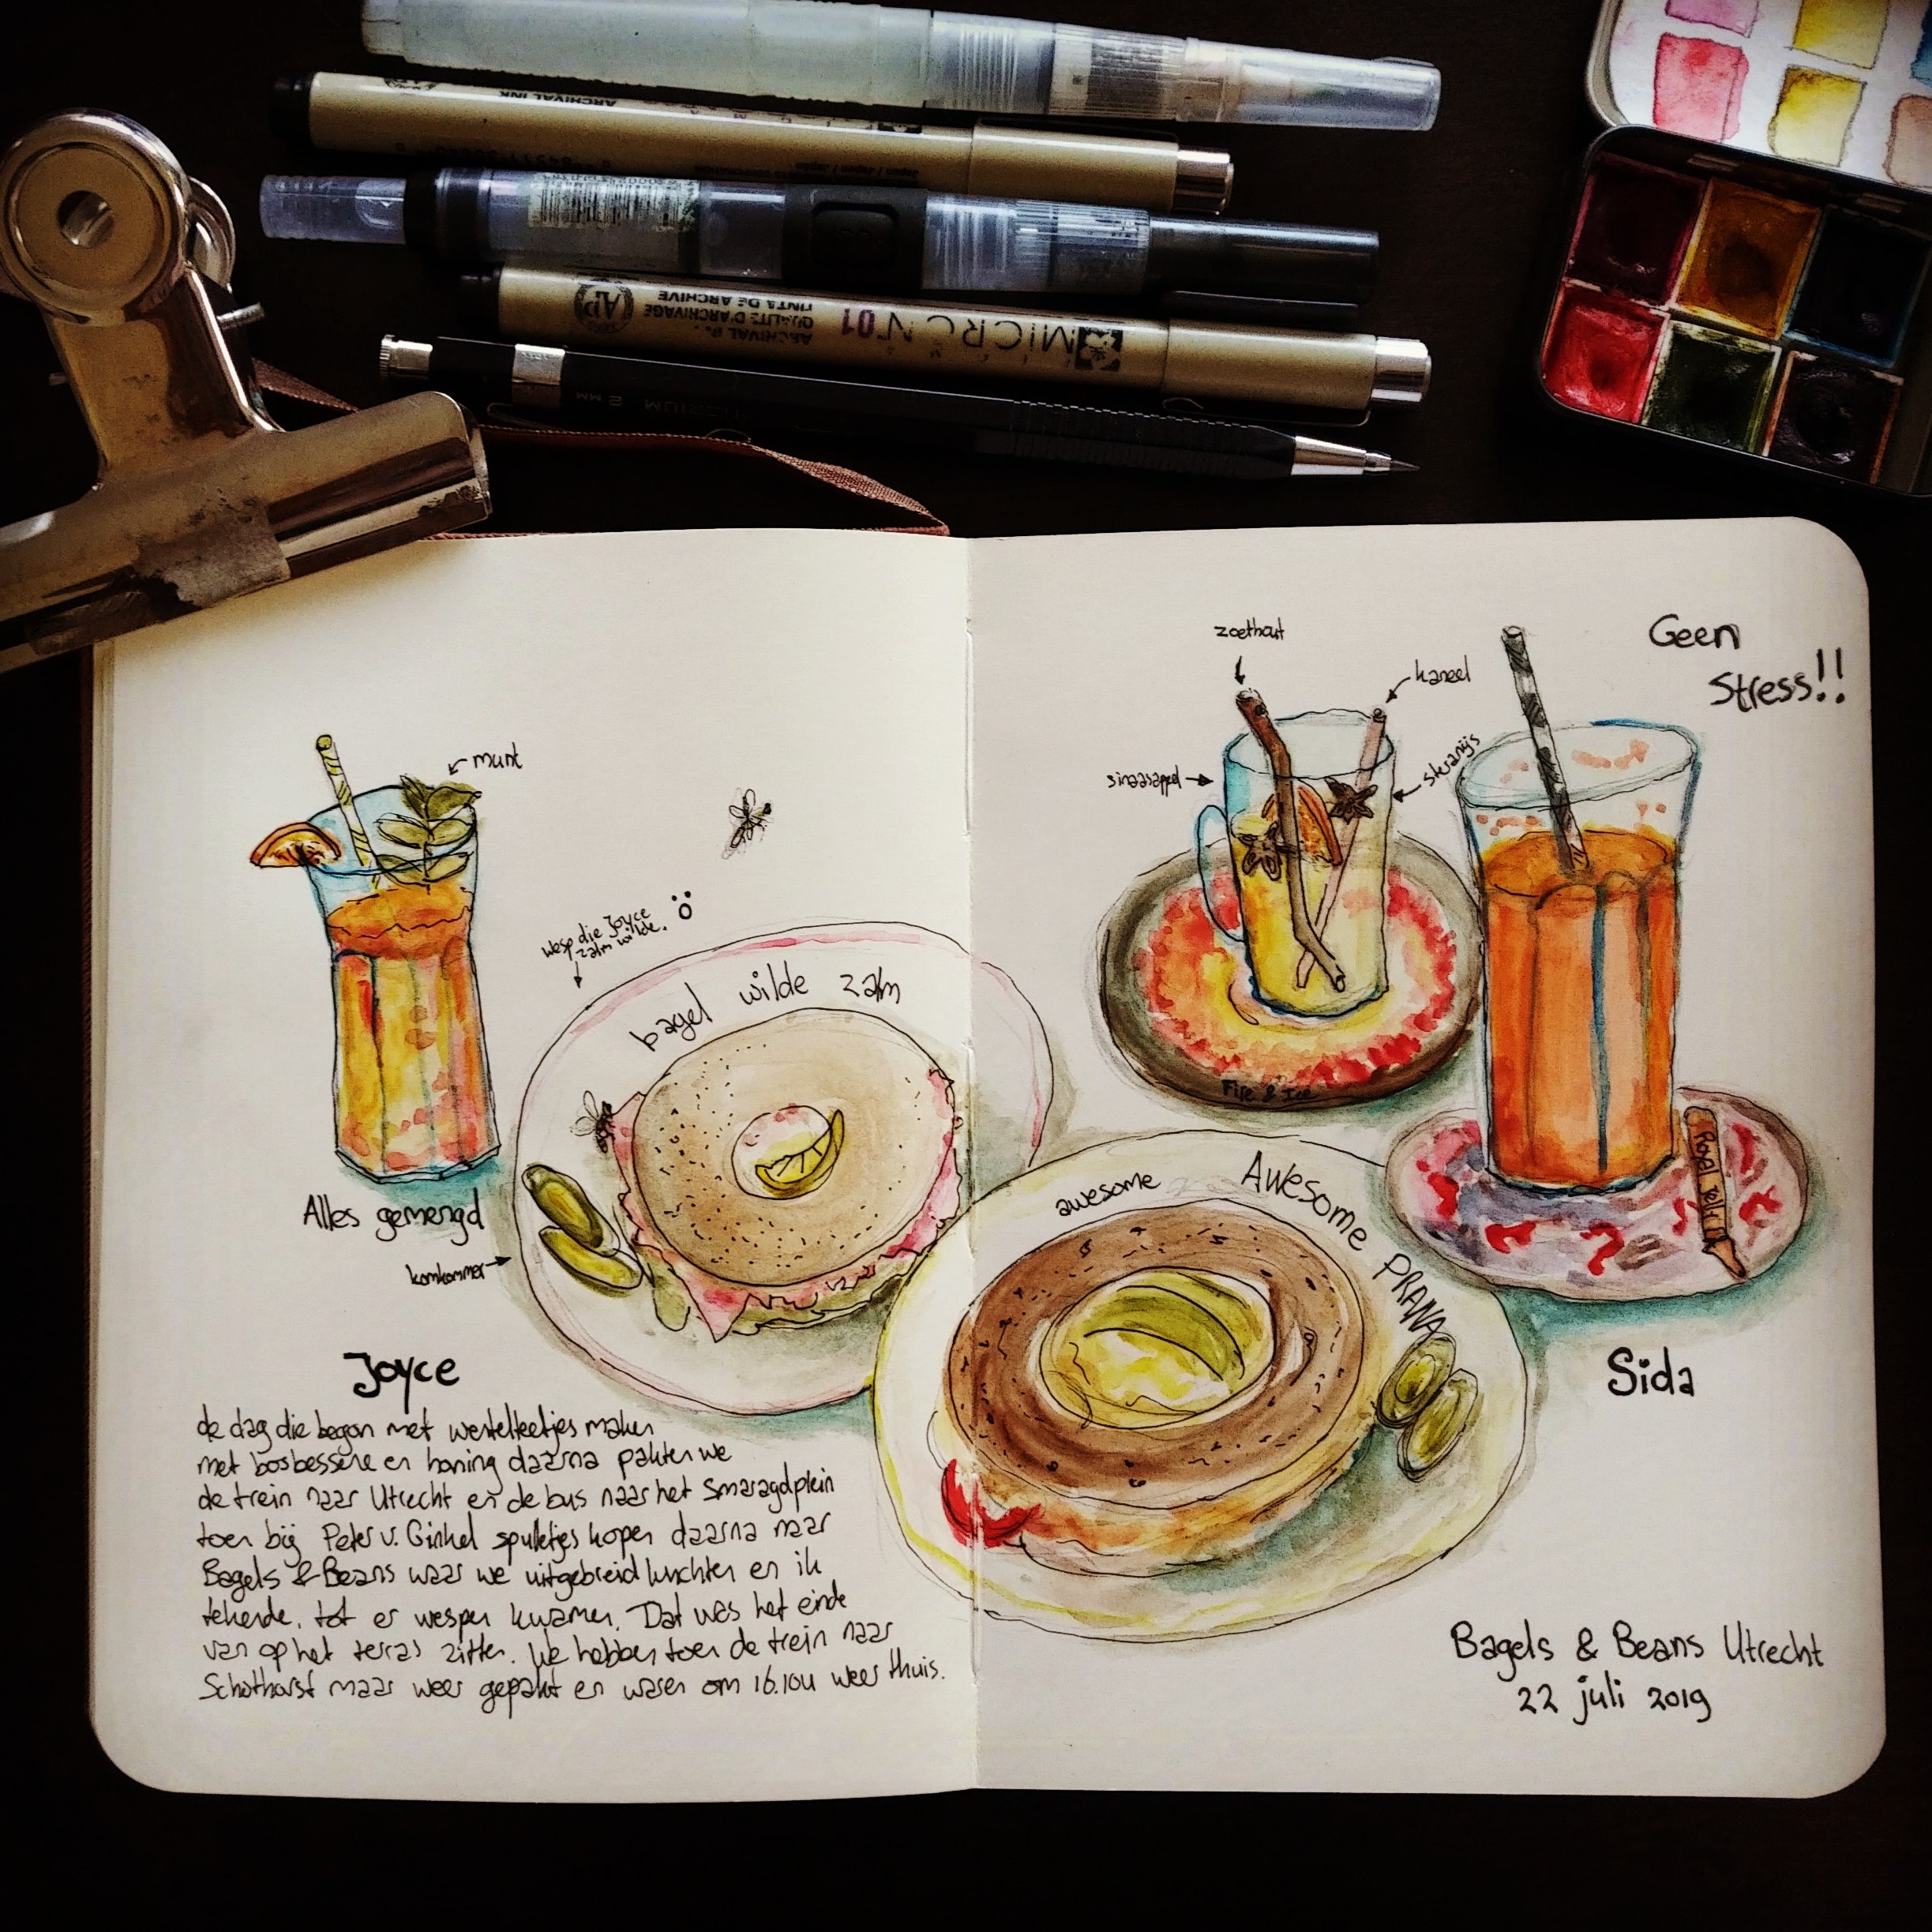 ARCHIVAL INK
Japan / Japon
MICRON 01
ARCHIVAL
QUALITÉ D'ARCHIVAGE
TINTA DE ARCHIVE
AP
2 MM
munt
wesp die Joyce
zalm wilde.
bagel wilde zalm
Alles gemengd
komkommer
Joyce
de dag die begon met wentelteefjes maken
met bosbessene en honing daarna pakten we
de trein naar Utrecht en de bus naar het Smaragdplein
toen bij Peter v. Ginkel spulletjes kopen daarna naar
Bagels & Beans waar we uitgebreid lunchten en ik
tekende, tot er wespen kwamen. Dat was het einde
van op het terras zitten. We hebben toen de trein naar
Schothorst maar weer gepakt en waren om 16.10u weer thuis.
zoethout
kaneel
Geen
Stress!!
sinaasappel
steranijs
Fire & Ice
awesome
AWESOME PRAWN
Sida
Bagels & Beans Utrecht
22 juli 2019